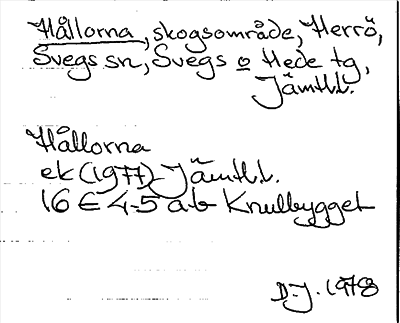 Hållorna, skogsområde, Herrö,
Svegs sn, Svegs o Hede tg,
Jämtl.l.
Hållorna
ek (1977) Jämtl.l.
16 E 4-5 a-b Knulbygget
D-J. 1978